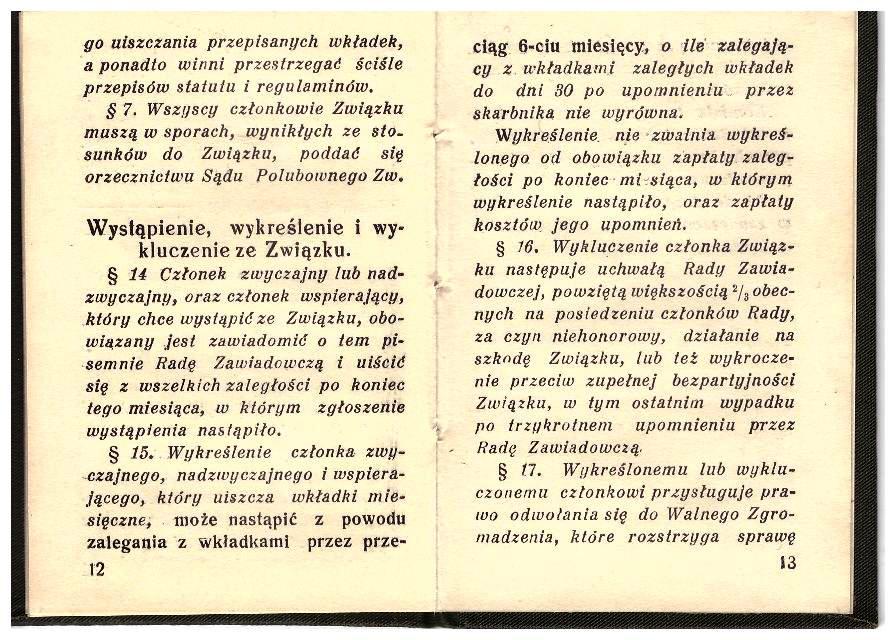 go uiszczania przepisanych wkładek,
a ponadto winni przestrzegać ściśle
przepisów statutu i regulaminów.
§ 7. Wszyscy członkowie Związku
muszą w sporach, wynikłych ze sto-
sunków do Związku, poddać się
orzecznictwu Sądu Polubownego Zw.
Wystąpienie, wykreślenie i wy-
kluczenie ze Związku.
§ 14 Członek zwyczajny lub nad-
zwyczajny, oraz członek wspierający,
który chce wystąpić ze Związku, obo-
wiązany jest zawiadomić o tem pi-
semnie Radę Zawiadowczą i uiścić
się z wszelkich zaległości po koniec
tego miesiąca, w którym zgłoszenie
wystąpienia nastąpiło.
§ 15. Wykreślenie członka zwy-
czajnego, nadzwyczajnego i wspiera-
jącego, który uiszcza wkładki mie-
sięczne, może nastąpić z powodu
zalegania z wkładkami przez prze-
12
ciąg 6-ciu miesięcy, o ile zalegają-
cy z wkładkami zaległych wkładek
do dni 30 po upomnieniu przez
skarbnika nie wyrówna.
Wykreślenie nie zwalnia wykreś-
lonego od obowiązku zapłaty zaleg-
łości po koniec miesiąca, w którym
wykreślenie nastąpiło, oraz zapłaty
kosztów jego upomnień.
§ 16. Wykluczenie członka Związ-
ku następuje uchwałą Rady Zawia-
dowczej, powziętą większością 2/3 obec-
nych na posiedzeniu członków Rady,
za czyn niehonorowy, działanie na
szkodę Związku, lub też wykrocze-
nie przeciw zupełnej bezpartyjności
Związku, w tym ostatnim wypadku
po trzykrotnem upomnieniu przez
Radę Zawiadowczą.
§ 17. Wykreślonemu lub wyklu-
czonemu członkowi przysługuje pra-
wo odwołania się do Walnego Zgro-
madzenia, które rozstrzyga sprawę
13